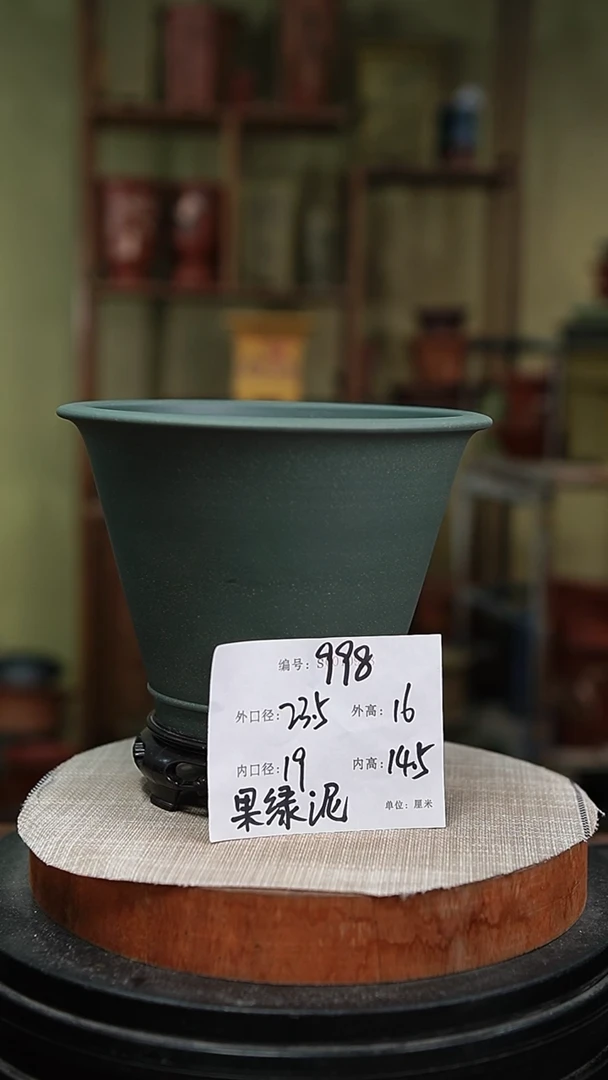 编号: 998
外口径: 23.5 外高: 16
内口径: 19 内高: 14.5
果绿泥 单位: 厘米